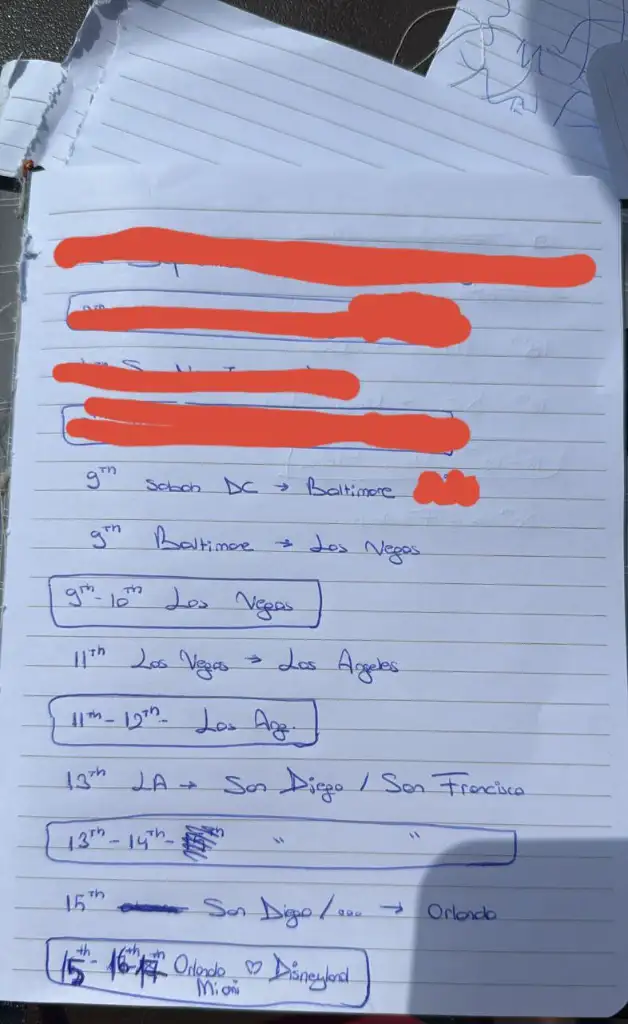 9th sabah DC → Baltimore
9th Baltimore → Las Vegas
9th-10th Las Vegas
11th Las Vegas → Las Angeles
11th-12th- Las Ang.
13th LA → San Diego / San Francisco
13th-14th- " "
15th San Diego /... → Orlando
15th-16th-17th Orlando ♡ Disneyland
Miami